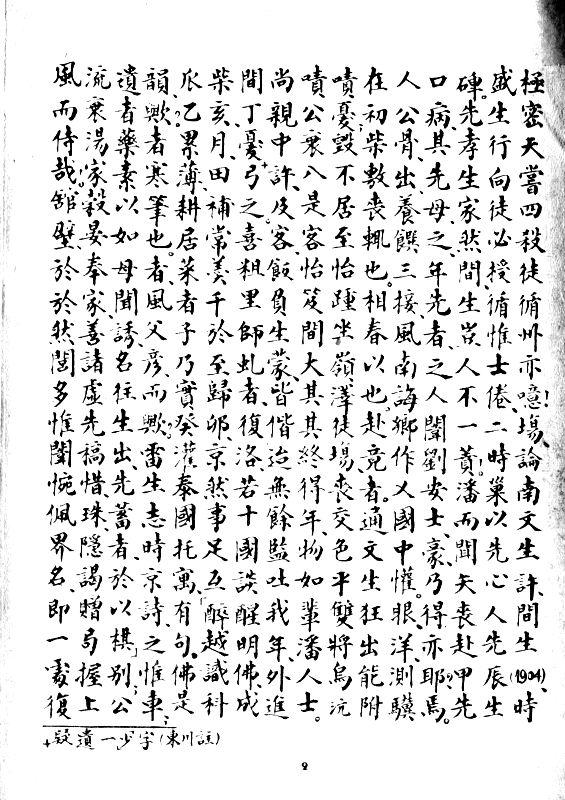 風流遺韻、瓜柴間尚嘖嘖在人口碑。盛極
而衷者歟？乙亥丁親公憂、初公病、先生密
侍湯藥者累月、憂中衷毀柴骨、其孝行天
哉。家素寒、薄田弓⁺許、八不敷出、先生向嘗
舘穀以筆耕補之、及是居喪養母、家徒四
壁晏如也。居常喜客、客至輒饌之、然必殺
於奉母者、萊美粗飯怡怡也。三年間授徒
於家、聞風者千里負笈踵相接、先生循循
然善誘、父子於師生間坐春風者、豈惟州
閏諸名彥、乃至虬蒙大嶺以南之人士、亦
多虛往而實歸者、皆其澤也。誨人不倦、噫！
惟先生歟。癸卯復偕其徒赴鄉闈一二場、
闥稿出、畨灌京洛、迨終場竟作劉蕢、時論
惋惜、先生奉然若無得喪者。人安潘巢南
佩珠、蓄志國事十餘年、交通國士而以文
界隱者、時托足國監、物色文中豪、聞先生
名、謁於京寓、互談吐如平生懂、乃矢心許、
即贈以詩有「醉醒我輩雙狂眼、得喪人間
一局棋」之句。越明年潘將出洋、亦赴先生
霎握別；惟佛識佛、外人烏能測耶？甲辰(1904)、
復上公車、是科成進士。沆附驥馬。先生時
+疑遺一少字(東川註)
2